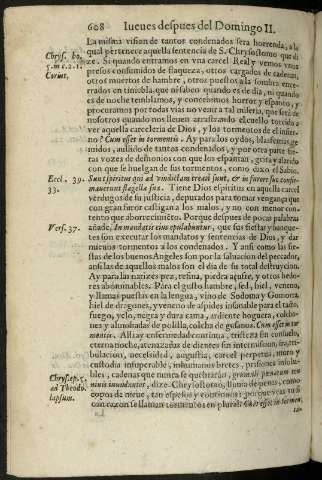 608 Iueues despues del Domingo II.
La misma vision de tantos condenados sera horrenda, a la
Chrys. ho. qual pertenece aquella sentencia de S. Chrysostomo que di
ze. Si quando entramos en vna carcel Real y vemos vnos
presos consumidos de flaqueza, otros cargados de cadenas,
otros muertos de hambre, otros puestos a la sombra ence-
rrados en tiniebla, que ni saben quando es de dia, ni quando
es de noche temblamos, y concebimos horror y espanto, y
procuramos por todas vias no venir a tal miseria, que sera de
nosotros quando nos lleuen arrastrando el cuello torcido a
ver aquella carceleria de Dios, y los tormentos de el infier-
no? Cum esset in tormentis. Ay para los oydos, blasfemas ge-
midos, aullido de tantos condenados, y por otra parte fie-
ras vozes de demonios con que los espantan, grita y alarido
con que se huelgan de sus tormentos, como dixo el Sabio.
Eccl. 39. Sunt spiritus qui ad vindictam creati sunt, & in furore suo confir-
33. mauerunt flagella sua. Tiene Dios espiritus en aquella carcel
verdugos de su justicia, deputados para tomar vengança que
con gran furor castigan a los malos, y no con menor con-
tento que aborrecimiẽto. Porque despues de pocas palabras
Vers. 37. añade. In mandatis eius epulabuntur, que sus fiestas y banque-
tes son executar los mandatos y sentencias de Dios, y dar
nueuos tormentos a los condenados. Y ansi como las fie-
stas de los buenos Angeles son por la saluacion del pecador,
ansi las de aquellos malos son el dia de su total destruycion.
Ay para las narizes pez, resina, piedra açufre, y otros hedo-
res abominables. Para el gusto hambre, sed, hiel, veneno,
y llamas puestas en la lengua, vino de Sodoma y Gomorra,
hiel de dragones, y veneno de aspides insanable para el tacto,
fuego, yelo, negra y dura cama, ardiente hoguera, colcho-
nes y almohadas de polilla, colcha de gusanos. Cum esset in tor
mentis. Alli ay enfermedad continua, tristeza sin consuelo,
eterna noche, atenazadas de dientes sin intermission, ira, tri-
bulacion, necessidad, angustia, carcel perpetua, muro y
custodia insuperable, inhumanos bretes, prisiones insolu-
bles, cadenas que nunca se quebraràn,
Chrys. ep. 5. dize Chrysostomo, lluuia de penas, como
ad Theodo. copos de nieue, tan espesos y continuos porque vea si
lapsum. con razon se llaman tormentos en plural? Cum esset in tormen